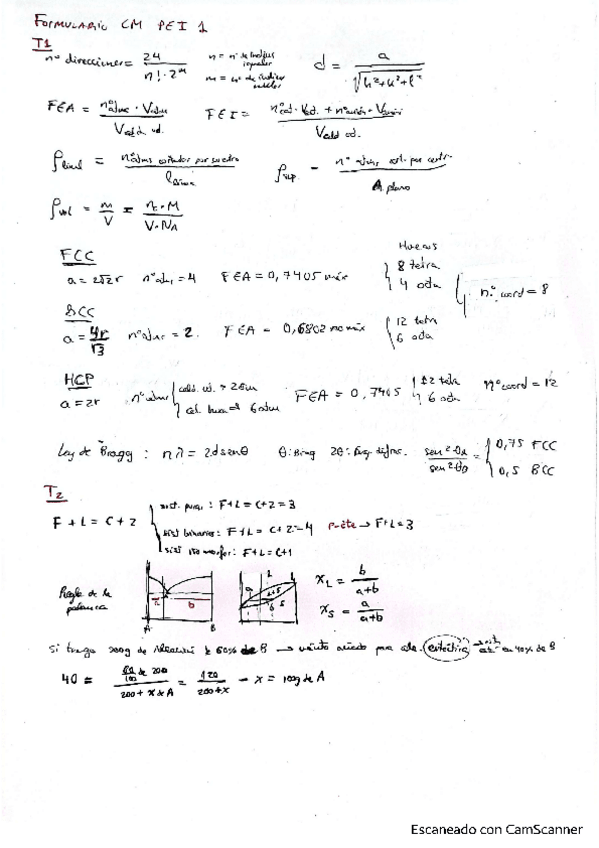 FORMULARIO CM PEI 1
T1
nº direcciones = 24 / n! · 2^m n = nº de índices iguales m = nº de índices nulos d = a / √(h²+k²+l²)
FEA = nºátms · Vátm / Vceld ud. FEI = nºcat · Vcat. + nºanión · Vanión / Vceld ud.
ρlineal = nº átms cortados por su centro / ρsup = nº átms cort. por centr. / A plano
ρvol = m/V = n · M / V · NA
FCC
a = 2√2r nºátms = 4 FEA = 0,7405 máx
Huecos
8 tetra
4 octa
nº coord = 8
BCC
a = 4r/√3 nºátms = 2. FEA = 0,6802 no máx
12 tetra
6 octa
HCP
a = 2r nºátms FEA = 0,7405
12 tetra
6 octa
nº coord = 12
Ley de Bragg : nλ = 2d senθ θ: Brag 2θ: áng. difrac. sen²θA / sen²θB = 0,75 FCC
0,5 BCC
T2
F + L = C + 2
sist. puro : F+L = C+2 = 3
sist binarios : F+L = C+2 = 4 P=cte → F+L = 3
sist isomorfo: F+L = C+1
Regla de la palanca
a b
A B
L
L+S
a b S
XL = b / a+b
XS = a / a+b
Si tengo 200g de aleación y 60% de B → cuánto añado para ale. eutéctica en 40% de B
40 = 60/100 de 200 / 200 + x de A = 120 / 200+x → x = 100g de A
Escaneado con CamScanner